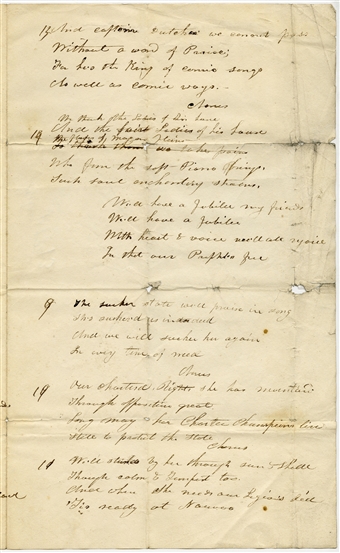 13 And captain Dutcher we cannot pass
Without a word of Praise;
For he's the King of comic songs
As well as comic ways. -
Chorus
We thank the Ladies of
14 And the fair Ladies of his house
to we take pains
Who from the soft Piano brings
Such soul enchanting strains.
We'll have a Jubilee my friends
We'll have a Jubilee
With heart & voice we'll all rejoice
In that our Prophet's free
9 The sucker state we'll praise in song
She's succor'd us in
And we will sucker her again
In every time of need
Chorus
10 Our chartered Rights she has maintain'd
Through opposition great
Long may her Charter Champions live
Still to protect the State
Chorus
11 We'll stick by her through sun & shade
Through calm & tempest too
And when she needs our Legion's aid
'Tis ready at Nauvoo